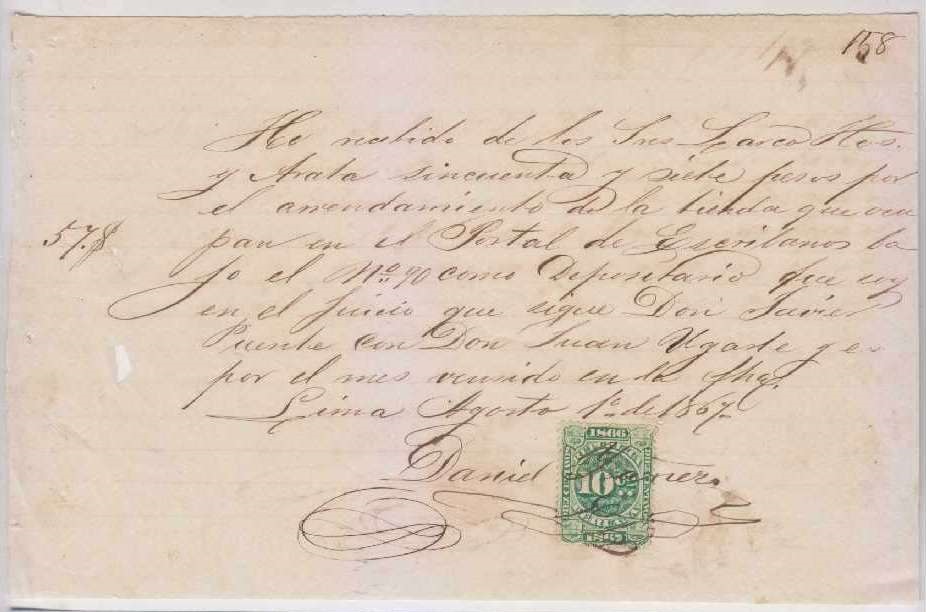 158
He resibido de los Sres Larco Hos.
y Arata sincuenta y siete pesos por
el arrendamiento de la tienda que ocu
57.$
pan en el Portal de Escribanos ba
jo el No. 90 como Depositario que soy
en el Juicio que sigue Don Javier
Puente con Don Juan Ugarte y es
por el mes vensido en la fha.
Lima Agosto 1o. de 1867
Daniel
1866
10
1867